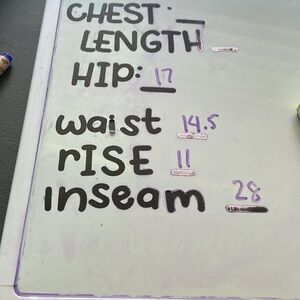 CHEST: __
LENGTH __
HIP: 17
waist 14.5
rISE 11
inseam 28